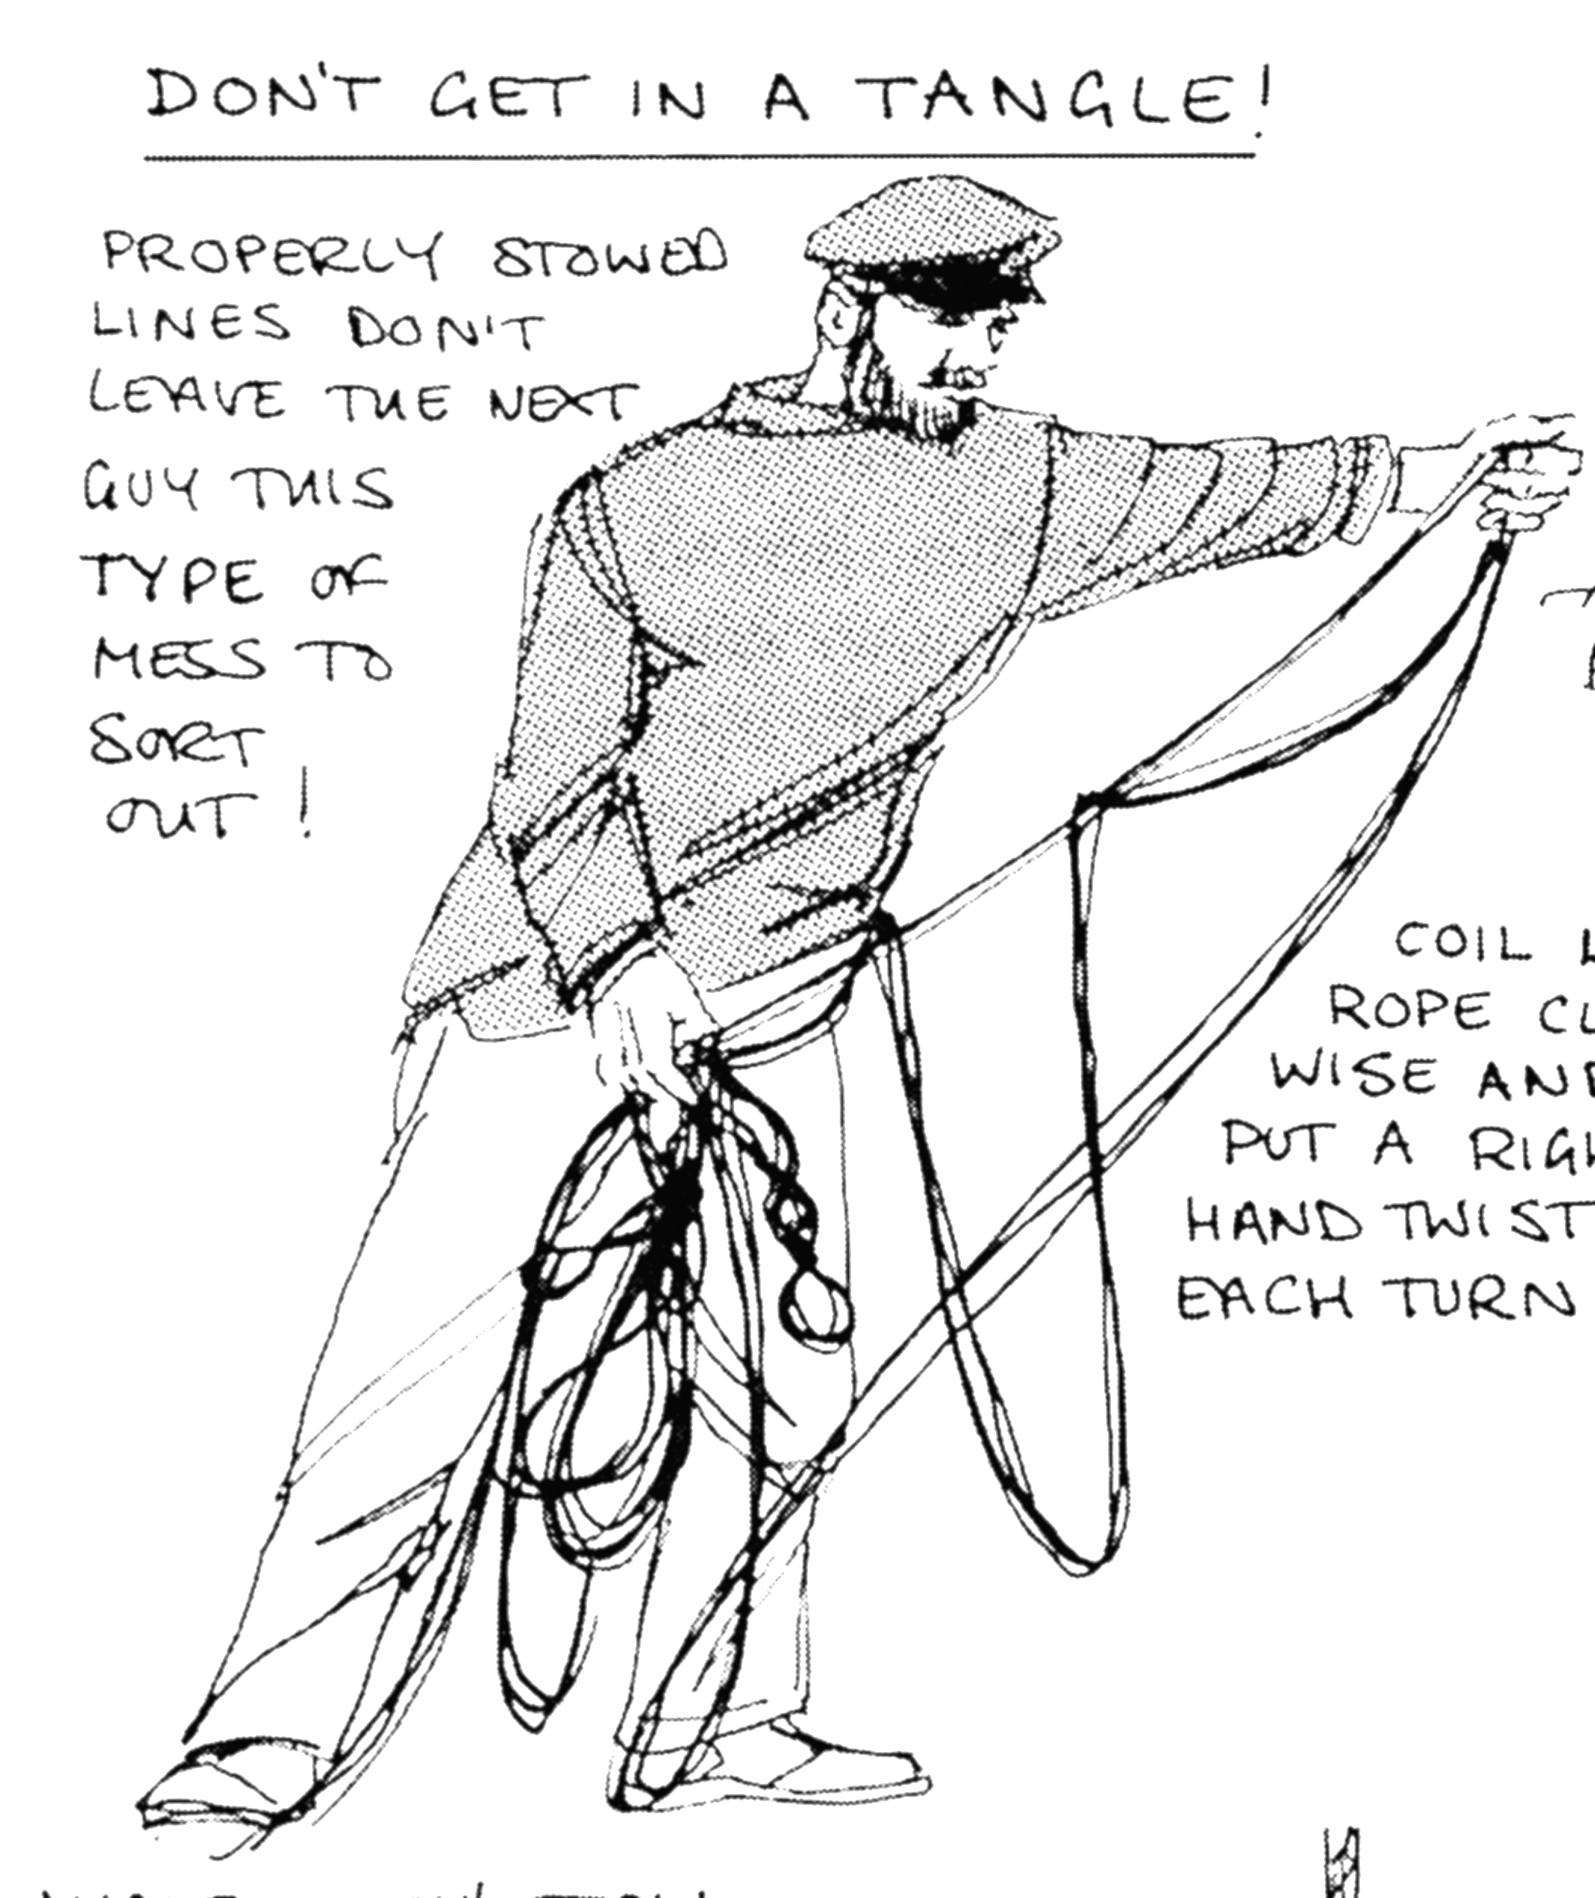 DON'T GET IN A TANGLE!
PROPERLY STOWED
LINES DON'T
LEAVE THE NEXT
GUY THIS
TYPE OF
MESS TO
SORT
OUT!
COIL
ROPE
WISE AND
PUT A
HAND TWIST
EACH TURN